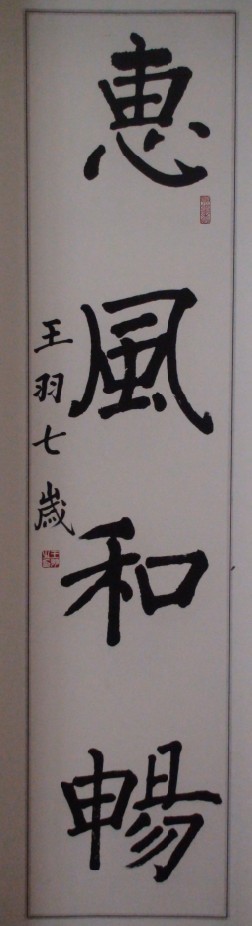 惠風和暢
王羽七歲